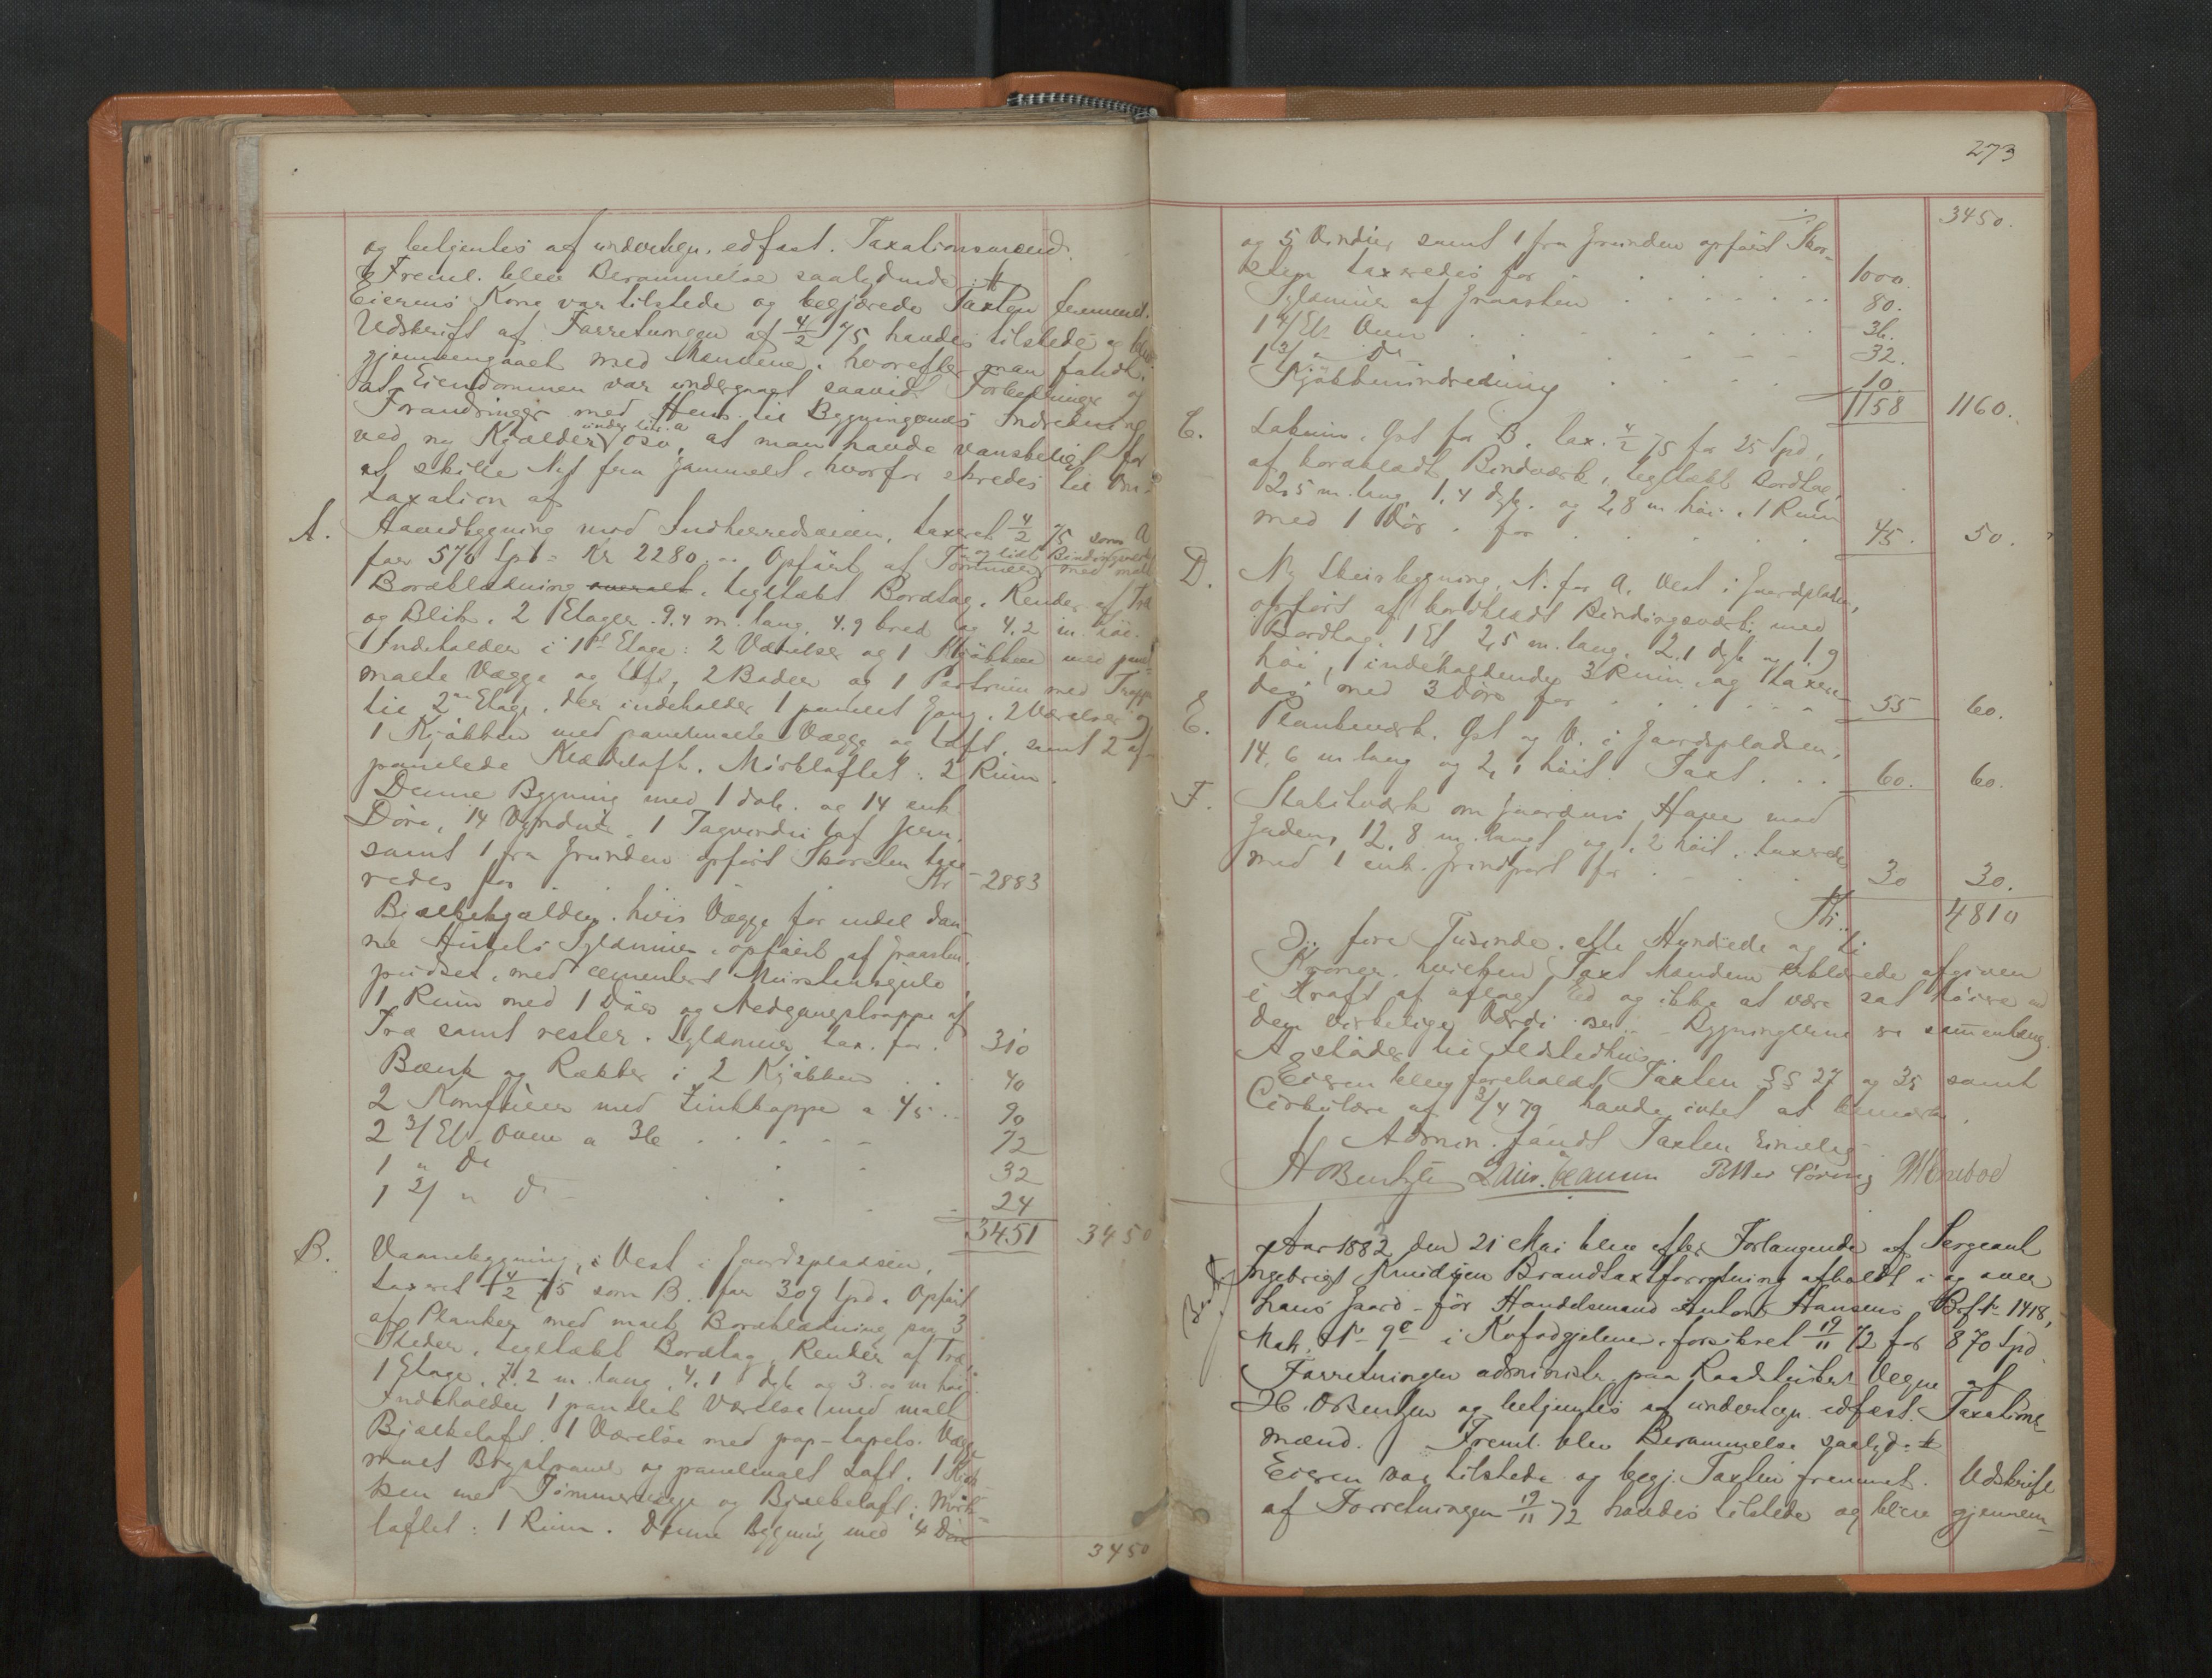 og betjentes af undertegn. edfæst. Taxationsmænd.
Freml. blev Berammelse saalydende:
Eierens Kone var tilstede og begjærede Taxten fremmet.
Udskrift af Forretningen af 4/2 75 havdes tilstede og blev
gjennemgaaet med Mændene, hvorefter man fandt,
at Eiendommen var undergaaet saavidt Forbedringer og
Forandringer med Hens. til Bygningernes Indredning
ved ny Kjælder under litr. a osv, at man havde vanskeligt for
at skille Nyt fra Gammelt, hvorfor skredes til Om-
taxation af
A. Hovedbygning mod Indherredsveien, taxeret 4/2 75 som A
for 570 Spd = Kr 2280 .. Opført af Tømmer og lidt Bindingsværk med malt
Bordklædning overalt, tegltækt Bordtag, Render af Træ
og Blik. 2 Etager. 9.4 m. lang, 4.9 bred og 4.2 m. høi.
Indeholder i 1ste Etage: 2 Værelser og 1 Kjøkken med panel-
malte Vægge og Loft, 2 Boder og 1 Portrum med Trappe
til 2den Etage, der indeholder 1 panelet Gang, 2 Værelser og
1 Kjøkken med panelmalte Vægge og Loft, samt 2 af-
panelede Klædeloft. Mørkloftet: 2 Rum.
Denne Bygning med 1 dob. og 14 enk.
Døre, 14 Vinduer, 1 Tagvindu af Jern,
samt 1 fra Grunden opført Skorsten taxe-
redes for . . . Kr 2883
Bjelkekjælder, hvis Vægge for endel dan-
ne Husets Sylemur, opført af Graasten,
pudset, med cementeret Murstensgulv
1 Rum med 1 Dør og Nedgangstrappe af
Træ samt rester. Sylemur tax. for . 310
Bænk og Rækker i 2 Kjøkken . . 40
2 Komfurer med Zinkkappe a 45 .. 90
2 3/Et. Ovne a 36 . . . . 72
1 " Do . . . 32
1 2/ " Do . . . 24
3451 3450
B. Vaanebygning, i Vest i Gaardspladsen,
taxeret 4/2 75 som B. for 309 Spd. Opført
af Planker med malt Bordklædning paa 3
Steder, tegltækt Bordtag, Render af Træ,
1 Etage, 7.2 m. lang, 4.1 dyb og 3. m høi.
Indeholder 1 panelet Værelse med malt
Bjelkeloft. 1 Værelse med pap-tapets. Vægge
malt Brystpanel og panelmalt Loft. 1 Kjøk-
ken med Tømmervægge og Bjelkeloft; Mørk-
loftet: 1 Rum. Denne Bygning med 4 Døre
3450
273
3450.
og 5 Vinduer samt 1 fra Grunden opført Skor-
sten taxeredes for . . . . 1000.
Sylemur af Graasten . . . . 80.
1 4/Et. Ovn . . . . 36.
1 3/ " Do . . . 32.
Kjøkkenindredning . . . . 10.
1158 1160.
C. Lokum, Øst for B, tax. 4/2 75 for 25 Spd,
af bordklædt Bindværk, tegltækt Bordtag,
2,5 m. lang, 1,4 dyb. og 2,8 m høi. 1 Rum
med 1 Dør . for . . . . 45. 50.
D. Ny Skurbygning, N. for A, Vest i Gaardpladsen,
opført af bordklædt Bindingsværk med
Bordtag. 1 Et, 2,5 m. lang, 2.1 dyb og 1.9
høi, indeholdende 3 Rum, og taxere-
des med 3 Døre for . . . . 55 60.
E. Plankeværk, Øst og V. i Gaardspladsen,
14,6 m lang og 2,1 høit. Taxt . . . 60. 60.
F. Stakitværk om Gaardens Have mod
Gaden, 12,8 m. langt og 1,2 høit, taxeredes
med 1 enk. Grindport for . . . . 30 30.
Kr. 4810
Er fire Tusinde otte Hundrede og ti
Kroner, hvilken Taxt Mændene erklærede afgiven
i Kraft af aflagt Ed og ikke at være sat høiere end
den virkelige Værdi osv. Bygningerne er sammenhæng.
A støder til Ildstedhus.
Eieren blev foreholdt Taxten §§ 27 og 35 samt
Cirkulære af 3/4 79 havde intet at bemærke.
Admin. fandt Taxten rimelig
H OBentzen Laur. Hansen Petter Løvvig
Aar 1882 den 21 Mai blev efter Forlangende af Sergeant
Ingebrigt Knudsen Brandtaxtforretning afholdt i og over
hans Gaard - før Handelsmand Anton Hansens Bof. No 1418,
Mat. No 9e i Kufodgjelene, forsikret 19/11 72 for 870 Spd.
Forretningen administr. paa Raadstuens Vegne af
H. OBentzen og betjentes af undertegn. edfæst. Taxations-
mænd. Freml. blev Berammelse saalyd.
Eieren var tilstede og begj. Taxten fremmet. Udskrift
af Forretningen 19/11 72 havdes tilstede og blev gjennem-